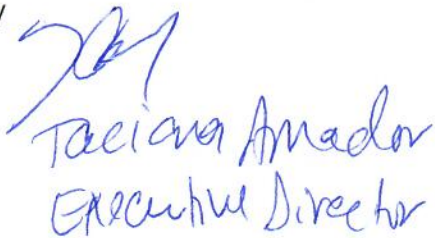 Taciana Amador
Executive Director